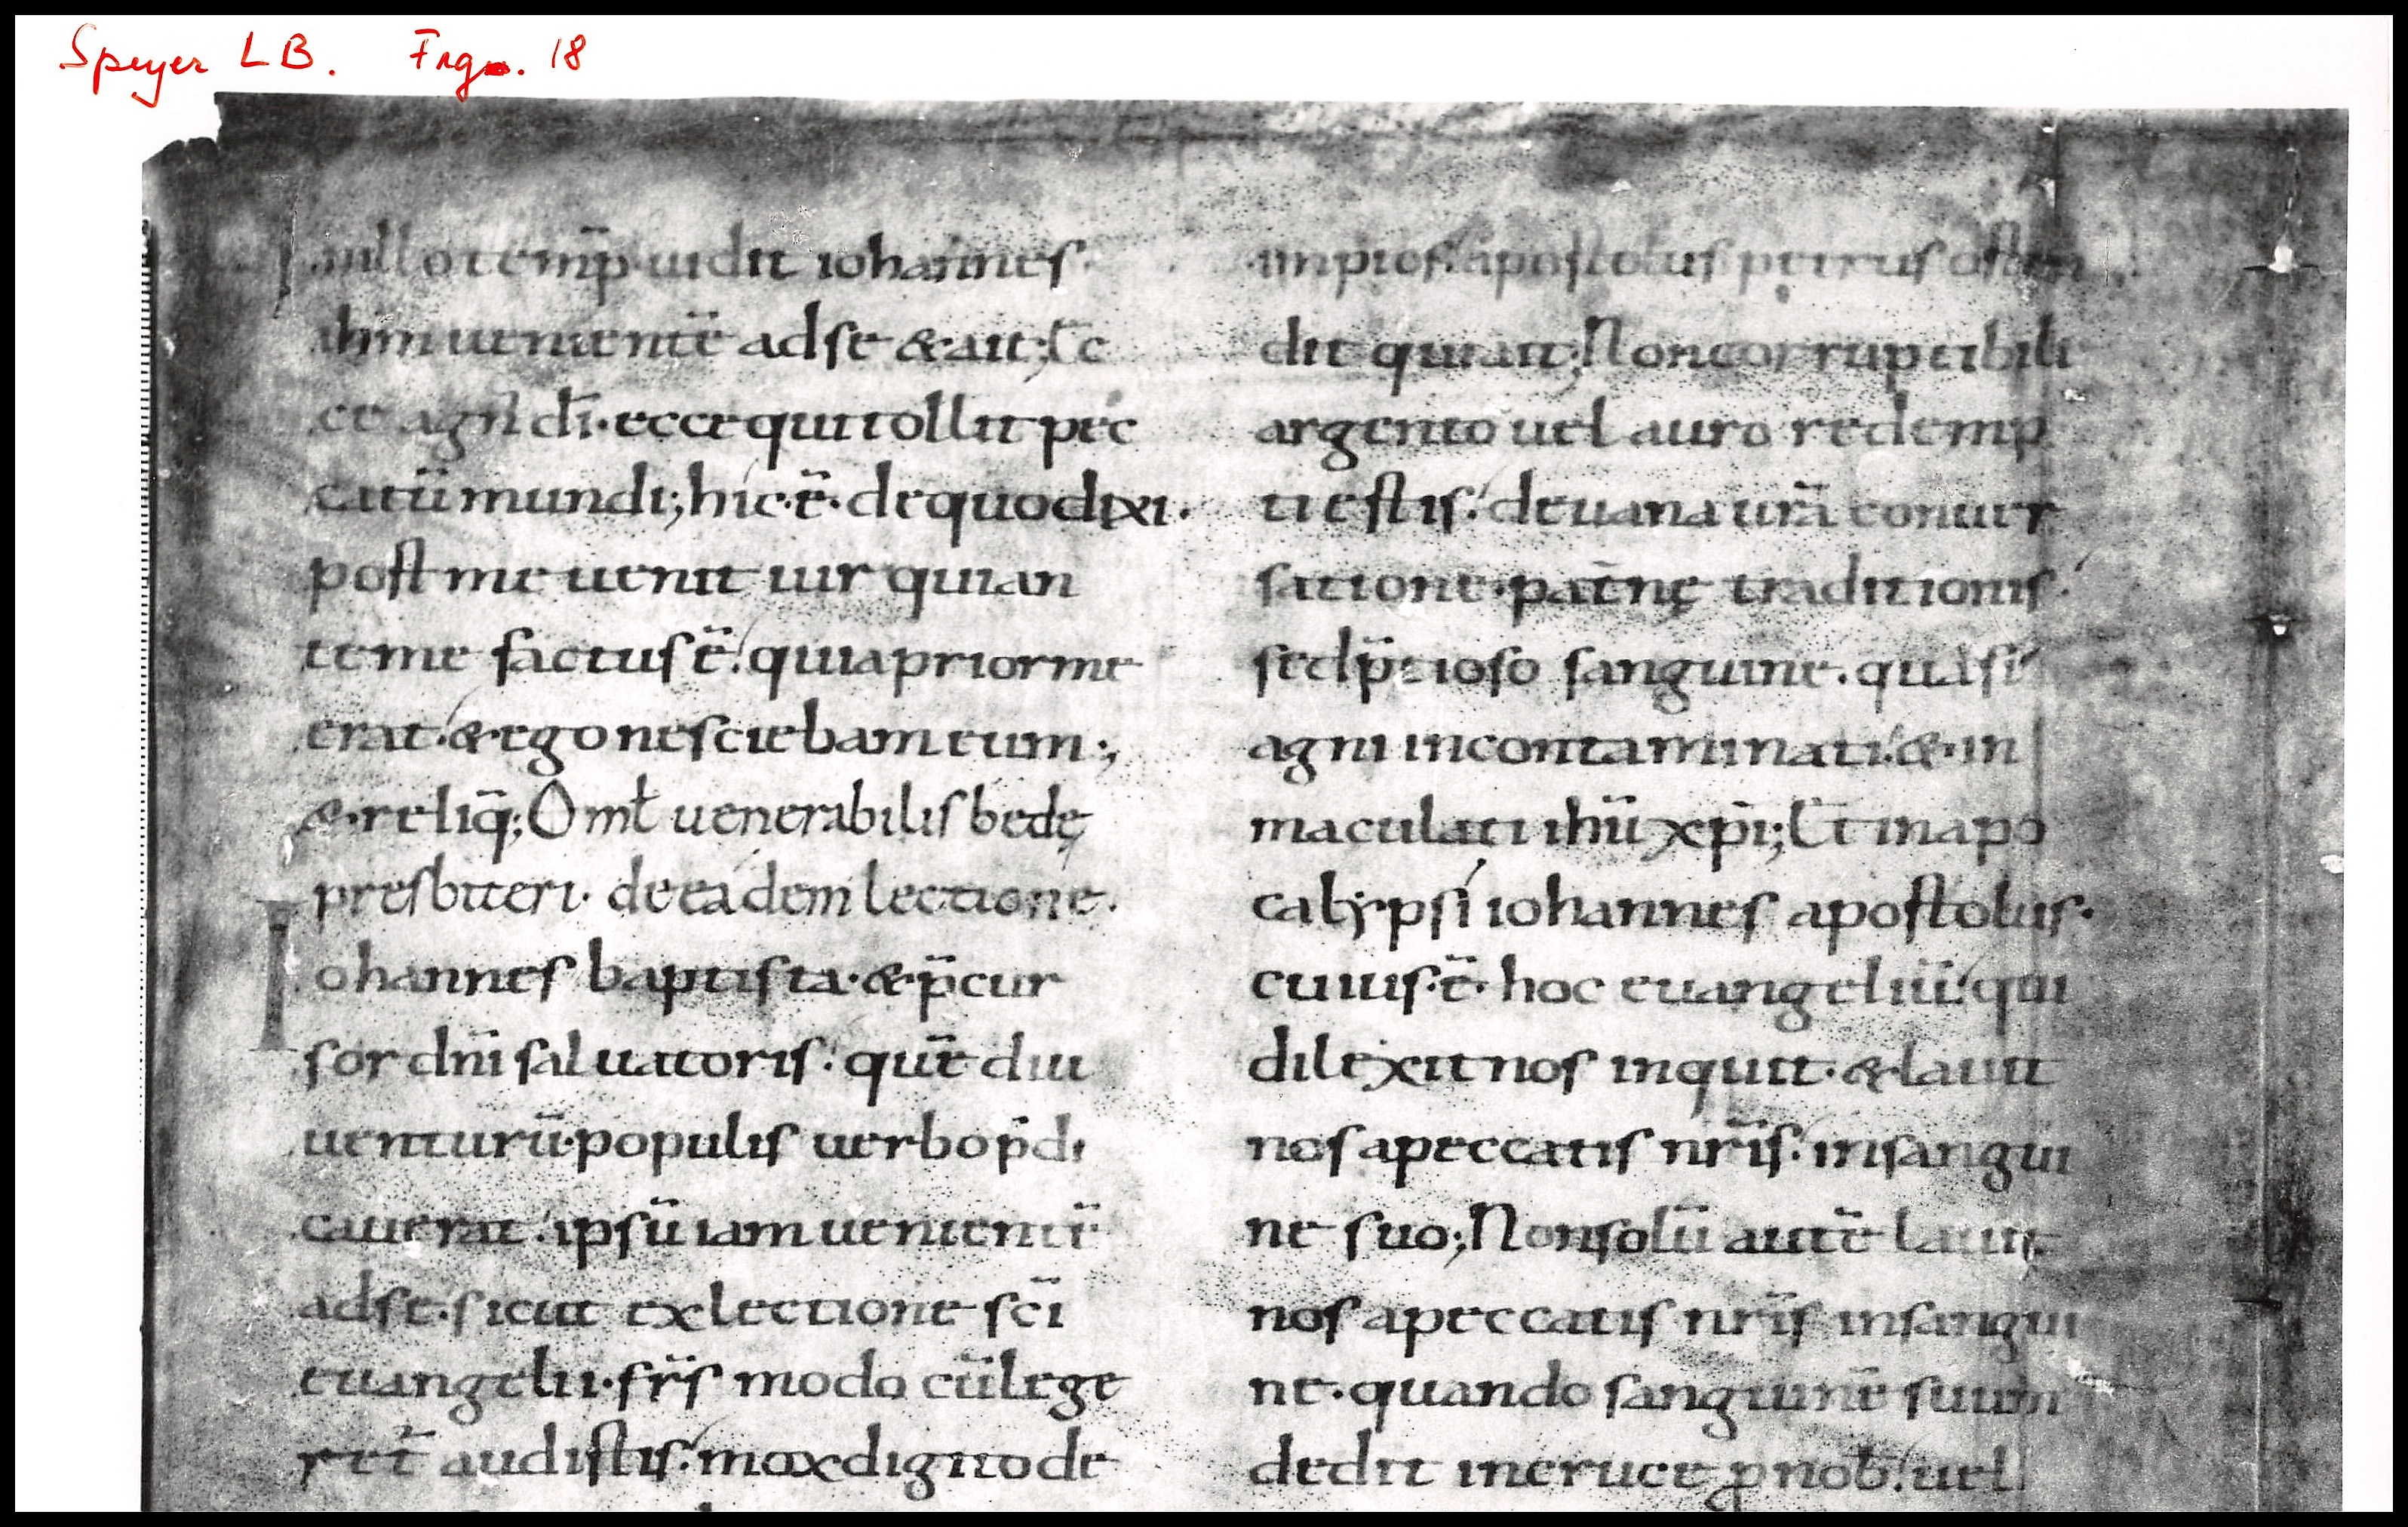 Speyer LB. Frg. 18
In illo temp̄ uidit iohannes
ihm̄ uenientē ad se & ait; Ec
ce agn̄ dī· ecce qui tollit pec
catū mundi; hic· ē· de quo dixi·
post me uenit uir quian
te me factus ē· quia prior me
erat· & ego nesciebam eum;
& reliq̄; Omł uenerabilis bedę
presbiteri· de eadem lectione·
Iohannes baptista· & p̄cur
sor dn̄i saluatoris· quē diu
uenturū populis uerbo p̄di
cauerat· ipsū iam uenientē
ad se· sicut ex lectione sc̄i
euangelii· fr̄s modo cū lege
ret̄ audistis· mox digito de
impios· apostolus petrus osten
dit qui ait; Non corruptibili
argento uel auro redemp
ti estis· de uana ur̄a conuer
satione· pat̄nę traditionis·
sed p̄tioso sanguine· quasi
agni incontaminati· & in
maculati ihū xp̄i; Et in apo
calypsi iohannes apostolus·
cuius· ē· hoc euangeliū· qui
dilexit nos inquit· & lauit
nos a peccatis nr̄is· in sangui
ne suo; Non solū autē lauit
nos a peccatis nr̄is in sangui
ne· quando sanguinē suum
dedit in cruce ꝓ nob̄· uel